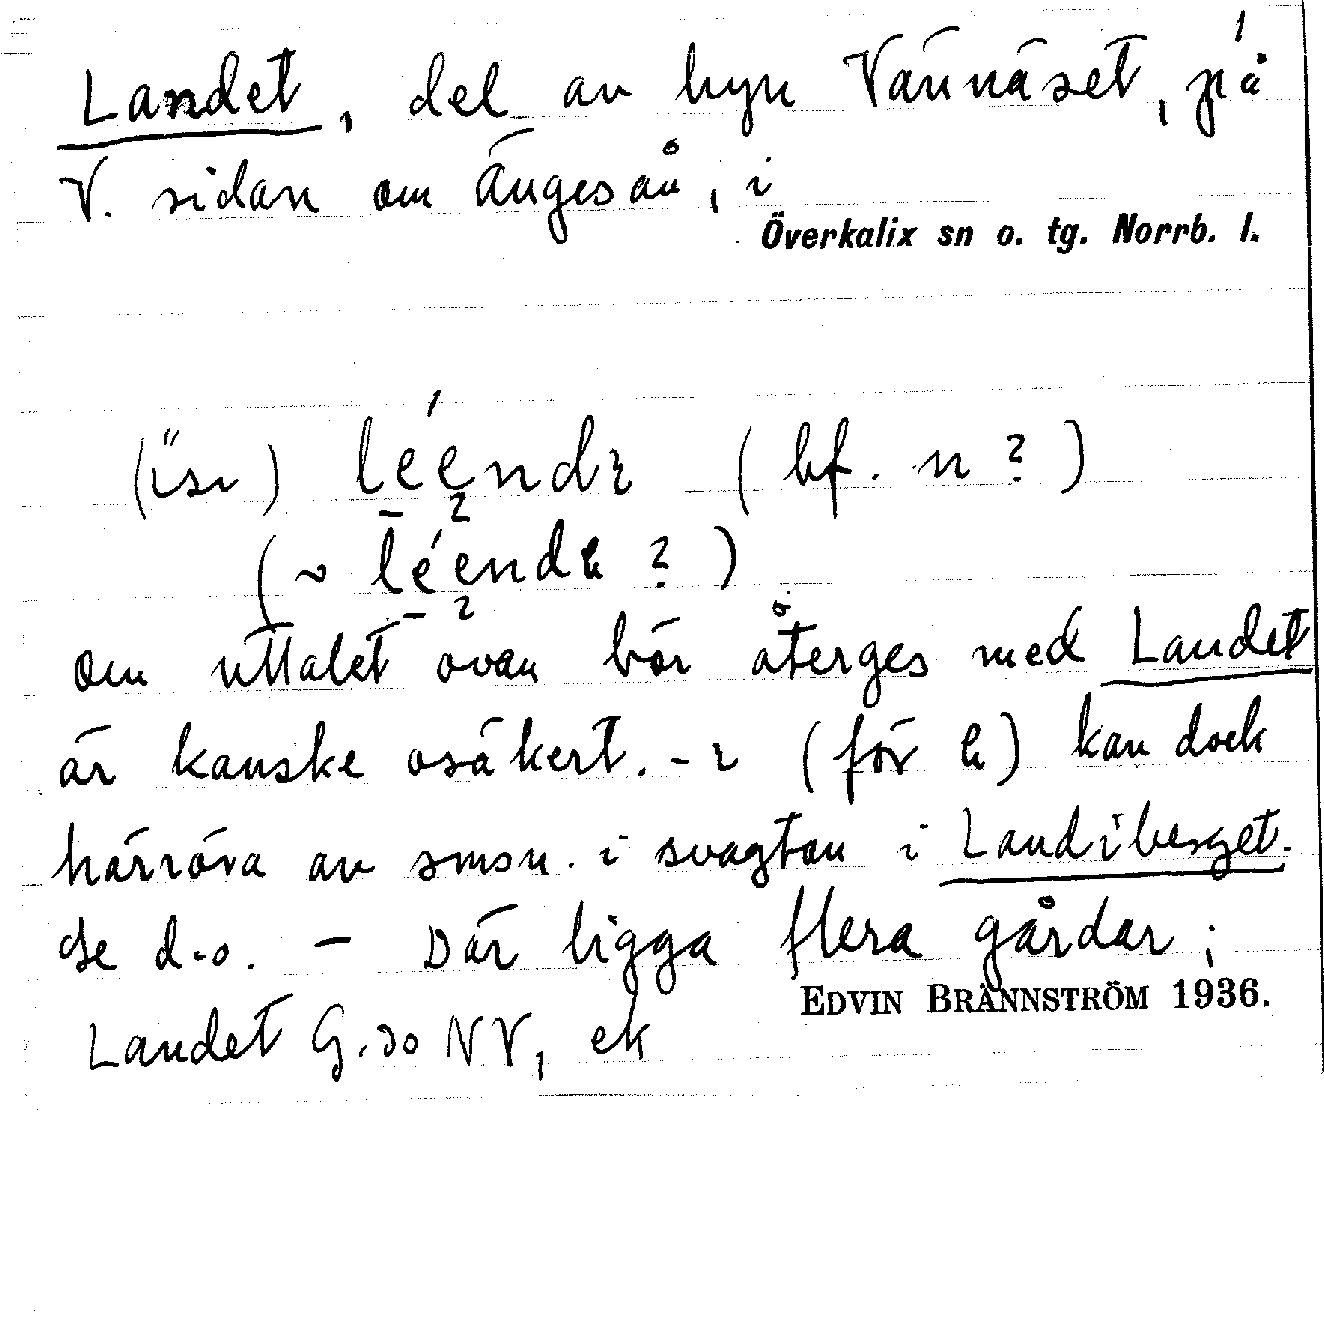 Landet, del av byn Vännäset, på
V. sidan om Ängesån, i
Överkalix sn o. tg. Norrb. l.
(bf. n ?)
(~ ?)
om uttalet ovan bör återges med Landet
är kanske osäkert. - (för ) kan dock
härröra av smsn. i svagton i Landiberget.
se d.o. – Där ligga flera gårdar;
EDVIN BRÄNNSTRÖM 1936.
Landet G.30 NV, ek